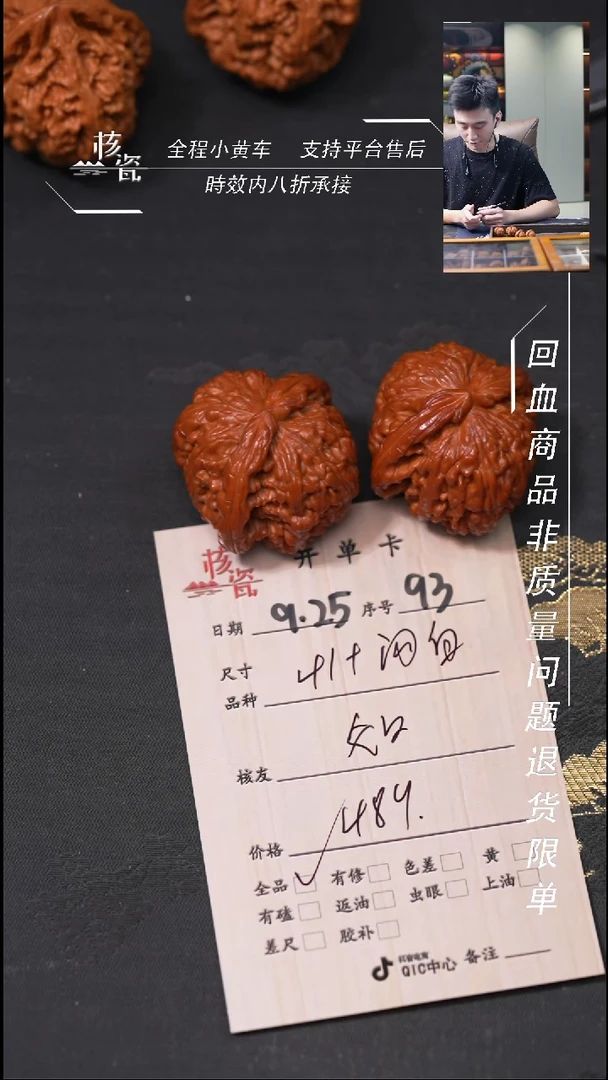 核瓷
全程小黄车 支持平台售后
時效内八折承接
回血商品非质量问题退货限单
核瓷
开单卡
日期 9.25 序号 93
尺寸 41+
品种
核友
价格 484.
全品 ✓ 有修 色差 黄
有磕 返油 虫眼 上油
差尺 胶补
抖音电商
QIC中心 备注